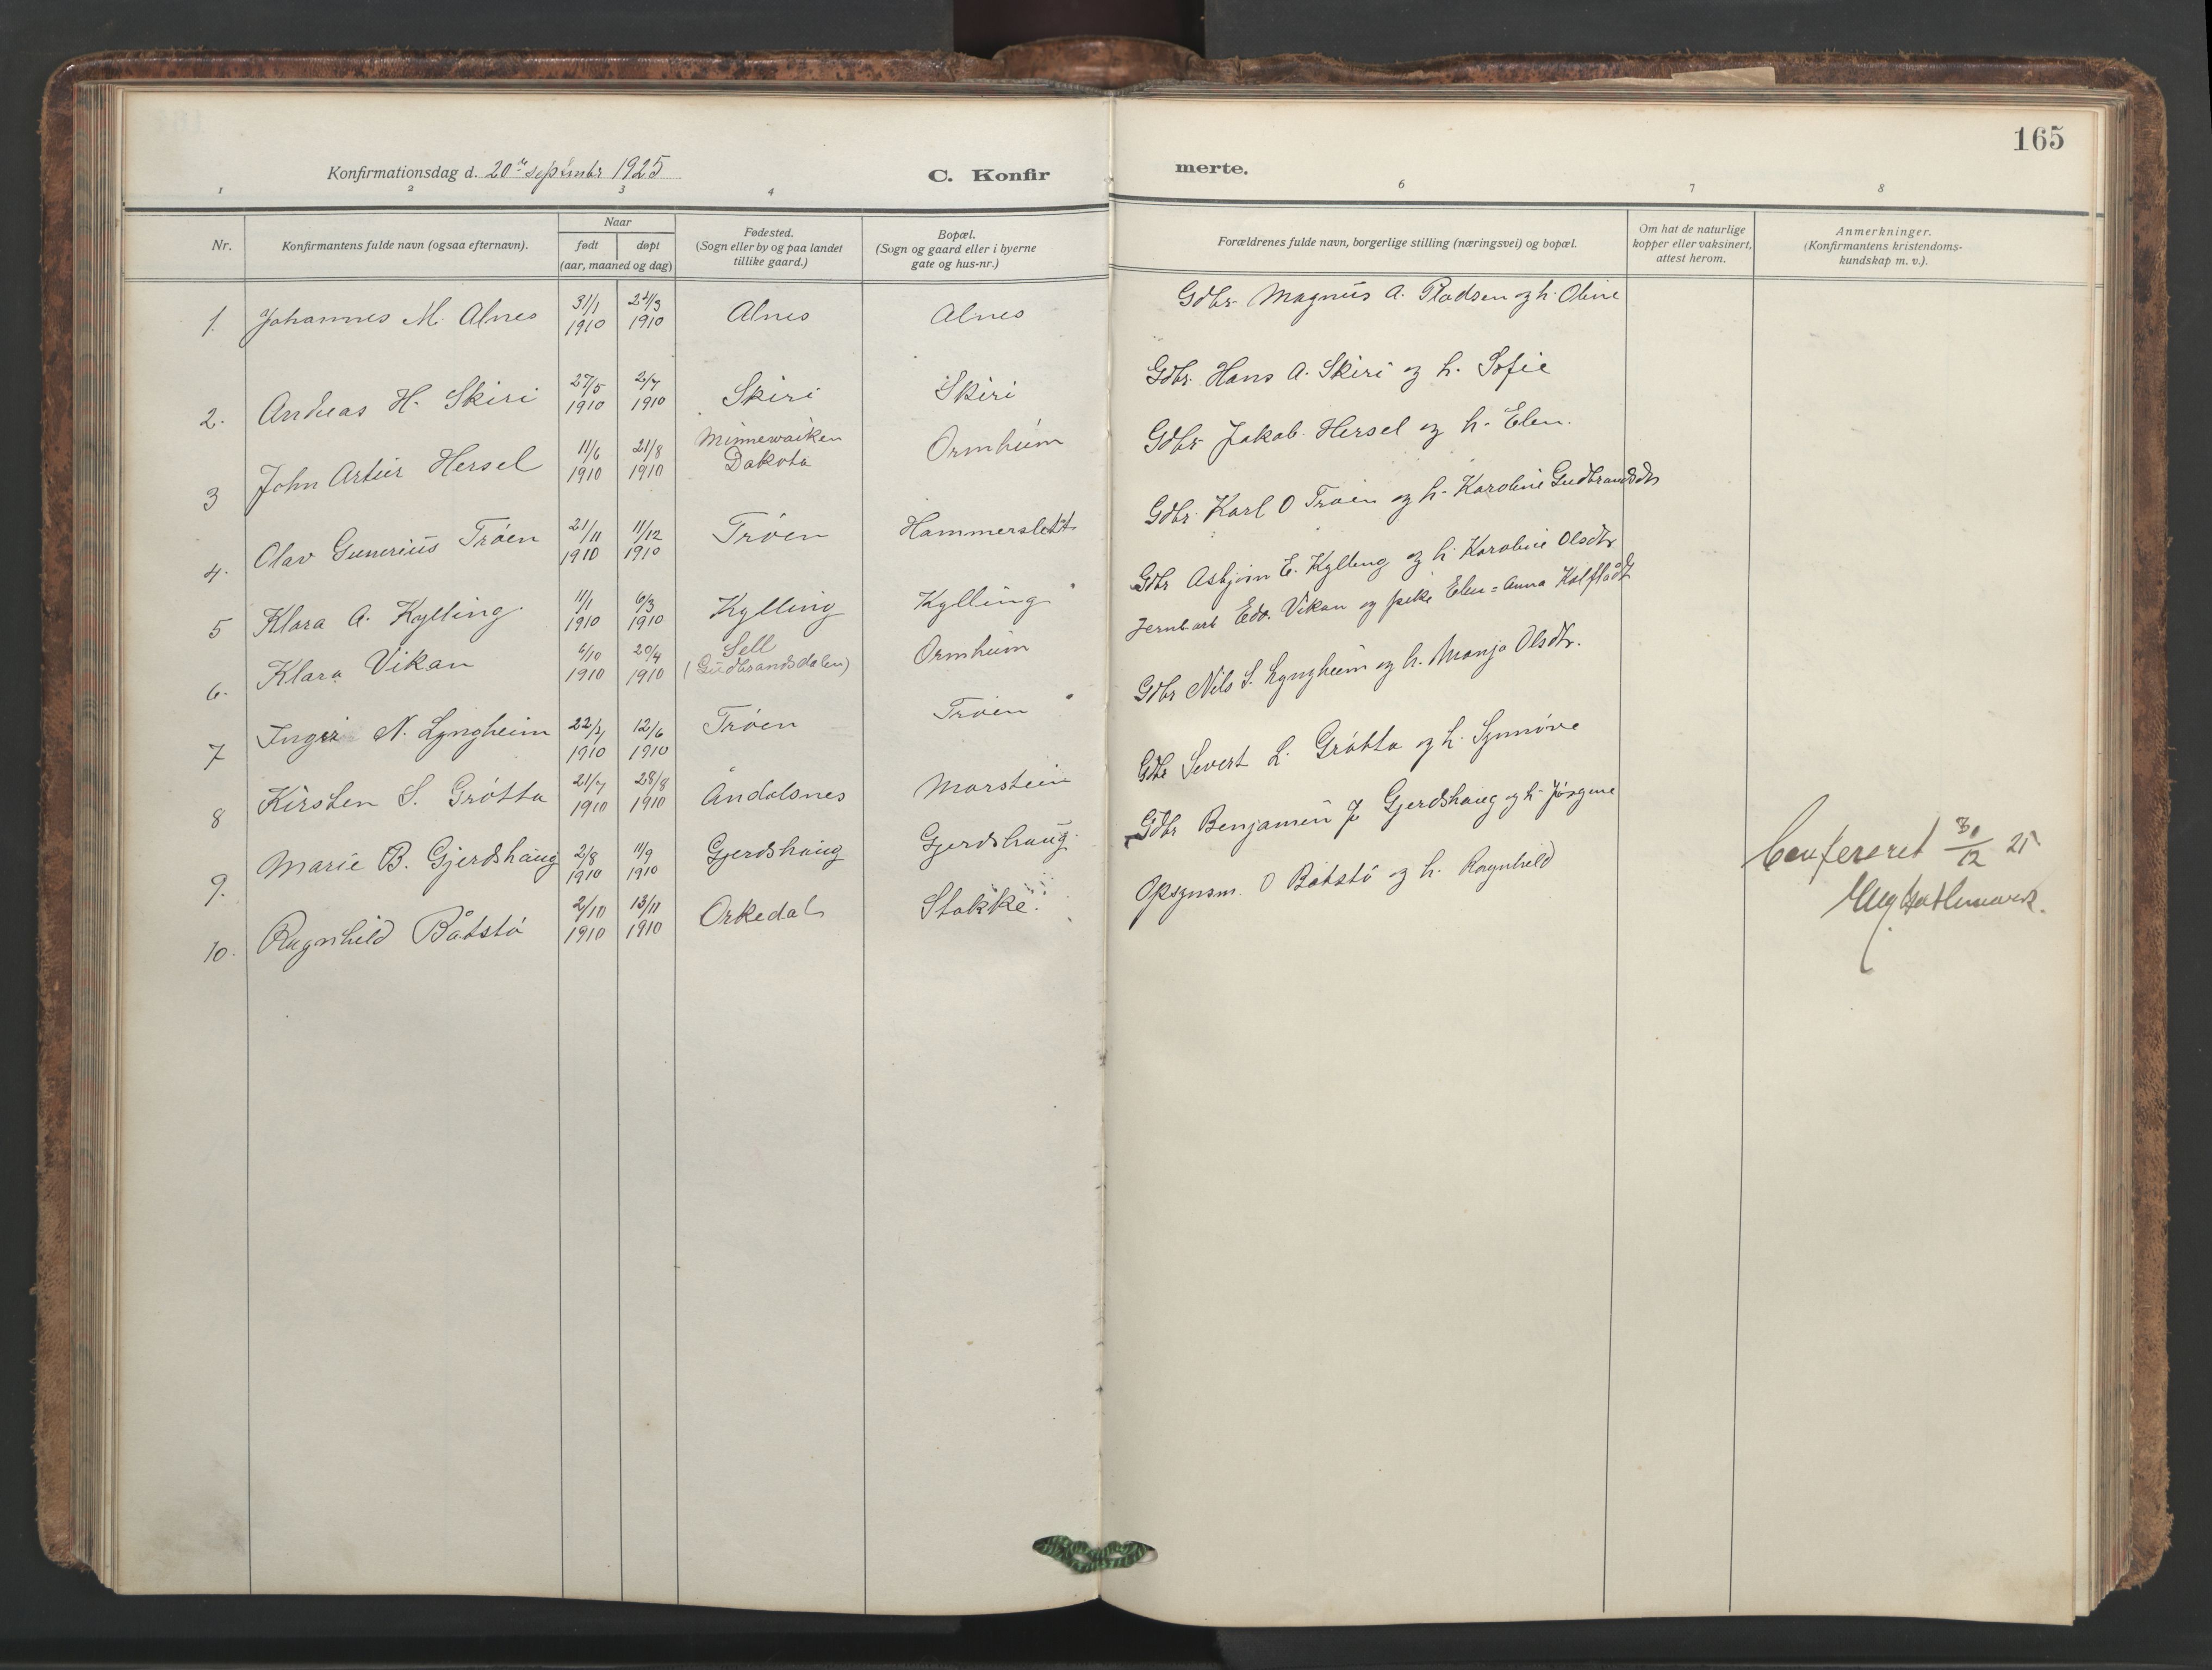 165
Konfirmationsdag d. 20de septembr 1925
C. Konfirmerte.
1 2 3 4 6 7 8
Nr.
Konfirmantens fulde navn (ogsaa efternavn).
Naar
født døpt
(aar, maaned og dag)
Fødested.
(Sogn eller by og paa landet
tillike gaard.)
Bopæl.
(Sogn og gaard eller i byerne
gate og hus-nr.)
Forældrenes fulde navn, borgerlige stilling (næringsvei) og bopæl.
Om hat de naturlige
kopper eller vaksinert,
attest herom.
Anmerkninger.
(Konfirmantens kristendoms-
kundskap m. v.).
1. Johannes M. Alnes 31/1 1910 1910 Alnes Alnes Gdbr. Magnus A. Pladsen og h. Oline
2. Andreas H. Skiri 27/5 1910 2/7 1910 Skiri Skiri Gdbr. Hans A. Skiri og h. Sofie
3 John Artur Hersel 11/6 1910 21/8 1910 Minnewaiken Dakota Ormheim Gdbr Jakob Hersel og h. Elen.
4. Olav Gunerius Trøen 21/11 1910 11/12 1910 Trøen Hammerslett Gdbr. Karl O Trøen og h. Karoline Gudbrandsdtr
5 Klara A. Kylling 11/1 1910 6/3 1910 Kylling Kylling Gdbr Asbjørn E. Kylling og h. Karoline Olsdtr
6. Klara Vikan 1910 20/4 1910 Sell (Gudbrandsdalen) Ormheim Jernb.arb Edv. Vikan og pike Elen=Anna
7 N. Lyngheim 1910 12/6 1910 Trøen Trøen Gdbr Nils S. Lyngheim og h. Olsdtr.
8 Kirsten S. Grøtta 21/7 1910 28/8 1910 Åndalsnes Marstein Gdbr Severt L. Grøtta og h. Synnøve
9. Marie B. Gjerdshaug 2/8 1910 11/9 1910 Gjerdshaug Gjerdshaug Gdbr Benjamin J Gjerdshaug og h. Jørgine
10. Ragnhild Båtstø 2/10 1910 13/11 1910 Orkedal Stokke. Opsynsm. O Båtstø og h. Ragnhild
Confereret 12 25